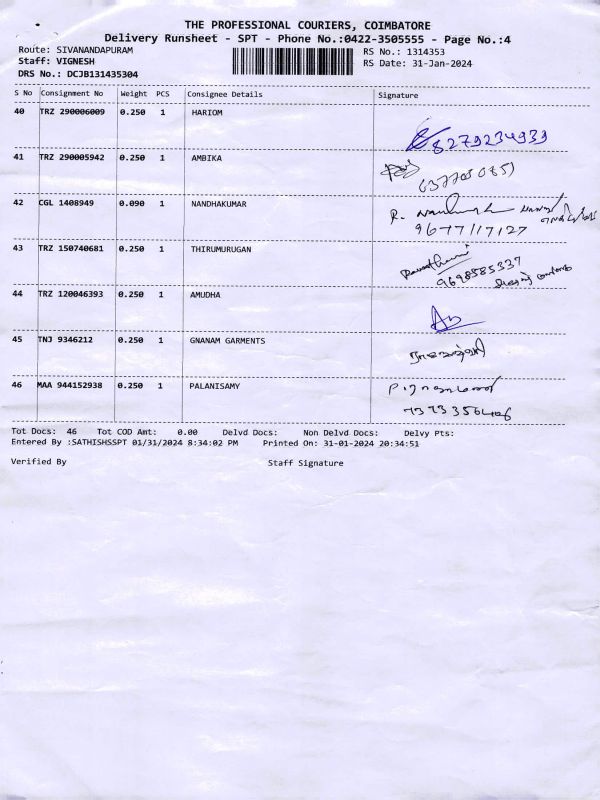 THE PROFESSIONAL COURIERS, COIMBATORE
Delivery Runsheet - SPT - Phone No.:0422-3505555 - Page No.:4
Route: SIVANANDAPURAM RS No.: 1314353
Staff: VIGNESH RS Date: 31-Jan-2024
DRS No.: DCJB131435304
S No Consignment No Weight PCS Consignee Details Signature
40 TRZ 290006009 0.250 1 HARIOM
8279234939
41 TRZ 290005942 0.250 1 AMBIKA
42 CGL 1408949 0.090 1 NANDHAKUMAR
9677117127
43 TRZ 150740681 0.250 1 THIRUMURUGAN
9698585337
44 TRZ 120046393 0.250 1 AMUDHA
45 TNJ 9346212 0.250 1 GNANAM GARMENTS
46 MAA 944152938 0.250 1 PALANISAMY
Tot Docs: 46 Tot COD Amt: 0.00 Delvd Docs: Non Delvd Docs: Delvy Pts:
Entered By :SATHISHSSPT 01/31/2024 8:34:02 PM Printed On: 31-01-2024 20:34:51
Verified By Staff Signature